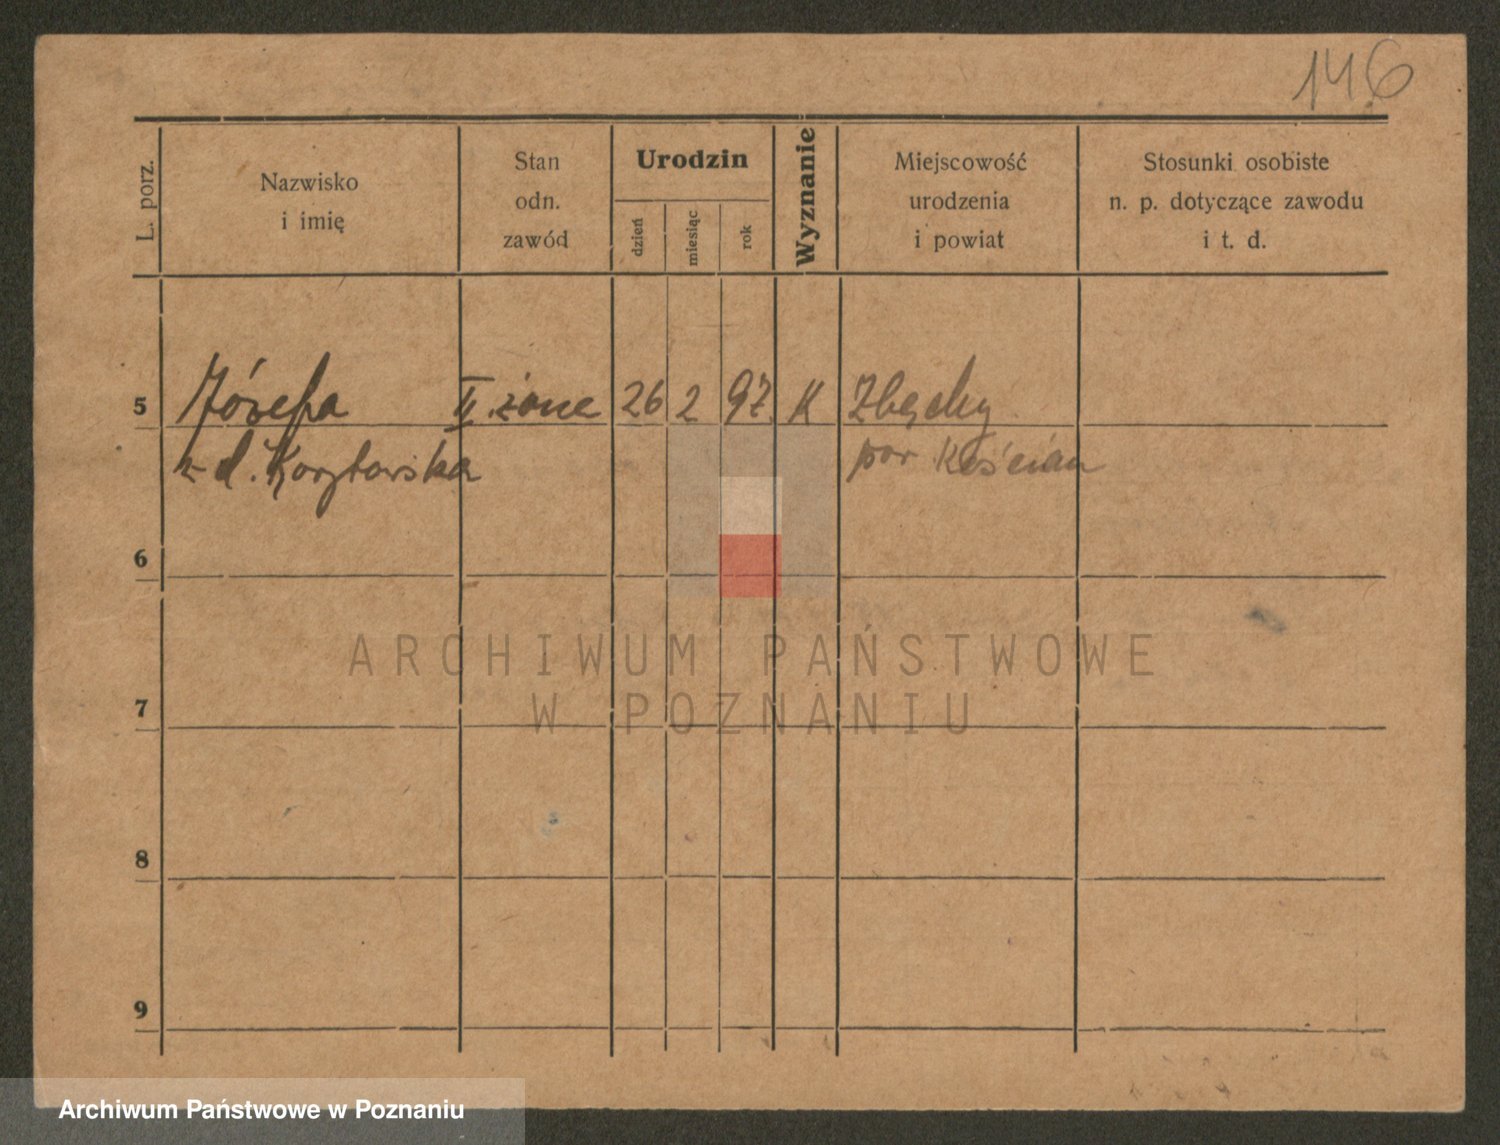 146
L. porz.
Nazwisko
i imię
Stan
odn.
zawód
Urodzin
dzień
miesiąc
rok
Wyznanie
Miejscowość
urodzenia
i powiat
Stosunki osobiste
n. p. dotyczące zawodu
i t. d.
5 Józefa II. żona 26 2 97 K Zbęchy
z d. Korytowska pow Kościan
6
7
8
9
ARCHIWUM PAŃSTWOWE
W POZNANIU
Archiwum Państwowe w Poznaniu